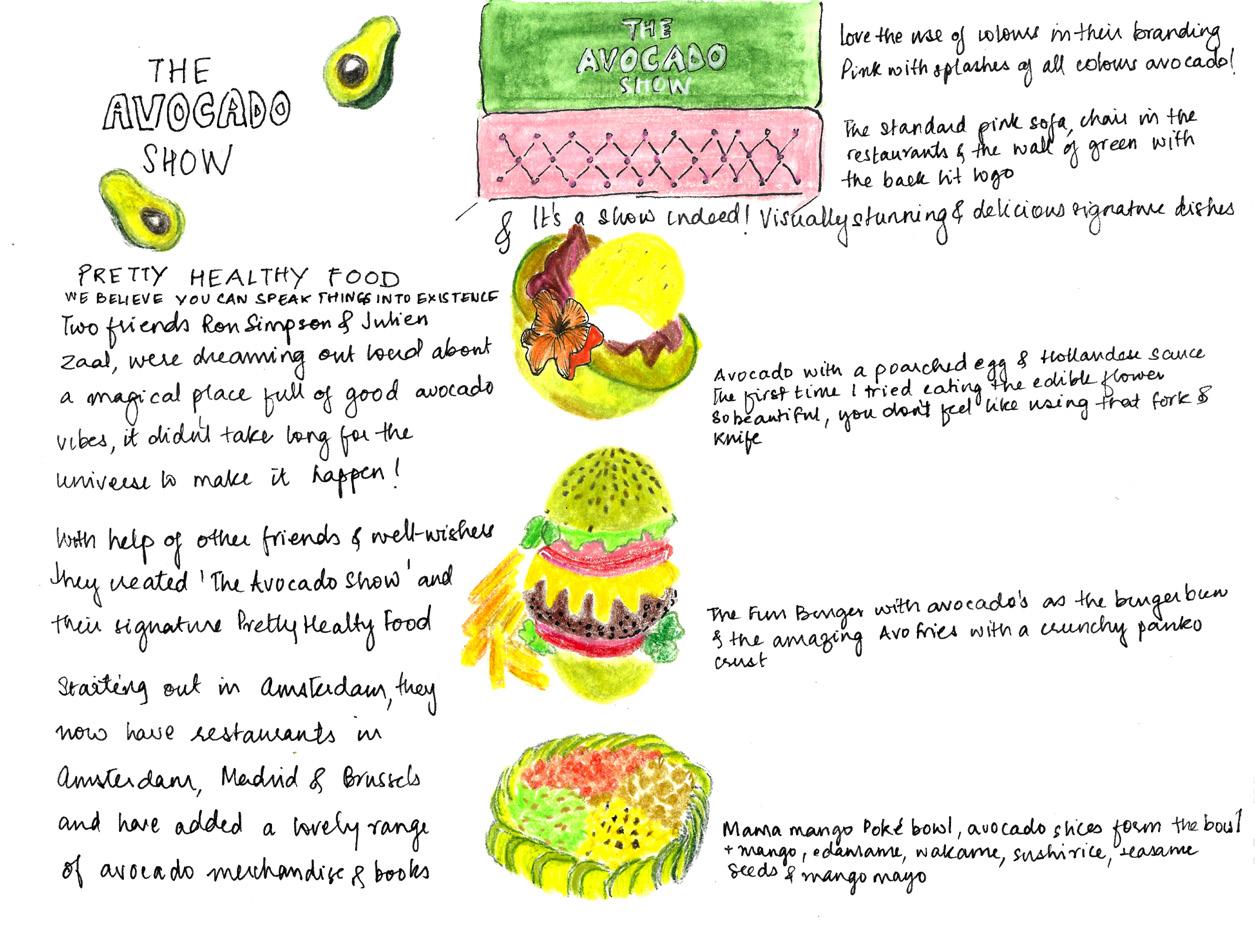 THE
AVOCADO
SHOW
THE
AVOCADO
SHOW
Love the use of colours in their branding
Pink with splashes of all colours avocado!
The standard pink sofa, chair in the
restaurants & the wall of green with
the back lit logo
& It's a show indeed! Visually stunning & delicious signature dishes
PRETTY HEALTHY FOOD
WE BELIEVE YOU CAN SPEAK THINGS INTO EXISTENCE
Two friends Ron Simpson & Julien
Zaal, were dreaming out loud about
a magical place full of good avocado
vibes, it didn't take long for the
universe to make it happen!
With help of other friends & well-wishers
they created 'The Avocado Show' and
their signature Pretty Healty Food
Starting out in Amsterdam, they
now have restaurants in
Amsterdam, Madrid & Brussels
and have added a lovely range
of avocado merchandise & books
Avocado with a poarched egg & Hollandese sauce
The first time I tried eating the edible flower
So beautiful, you don't feel like using that fork &
Knife
The Fun Burger with avocado's as the burger bun
& the amazing Avo fries with a crunchy panko
crust
Mama mango Poké bowl, avocado slices form the bowl
+ mango, edamame, wakame, sushi rice, seasame
seeds & mango mayo